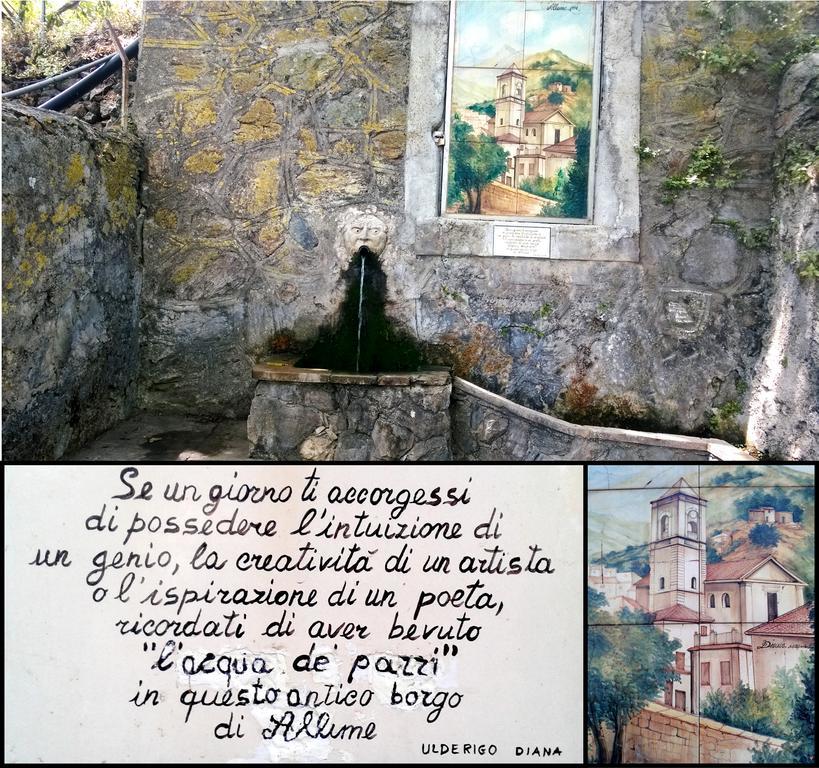 Allume
Se un giorno ti accorgessi
di possedere l'intuizione di
un genio, la creatività di un artista
o l'ispirazione di un poeta,
ricordati di aver bevuto
"l'acqua de' pazzi"
in questo antico borgo
di Allume
ULDERIGO DIANA
Diana